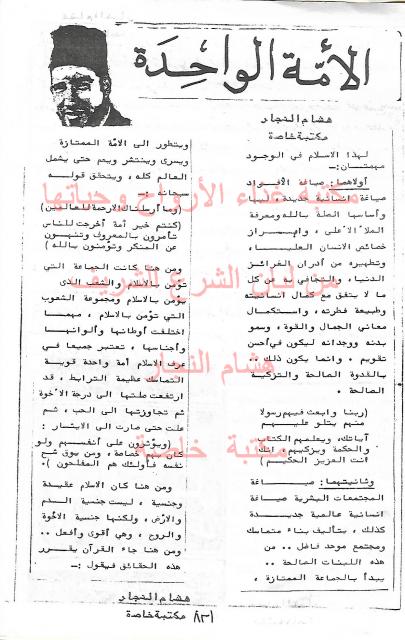 الأمّة الواحِدَة
هشام النجار
مكتبة خاصة
لهذا الاسلام في الوجود
مهمتان:ـ
أولاهما: صياغة الأفراد
صياغة انسانية جديدة، لبها
وأساسها الصلة بالله ومعرفة
الملأ الأعلى، وابراز
خصائص الانسان العليا،
وتطهيره من أدران الغرائز
الدنيا، والتجافي به عن كل
ما لا يتفق مع كمال انسانيته
وطبيعة فطرته، واستكمال
معاني الجمال والقوة، وسمو
بدنه ووجدانه ليكون في أحسن
تقويم. وانما يكون ذلك..
بالقدوة الصالحة والتزكية
الصالحة.
(ربنا وابعث فيهم رسولا
منهم يتلو عليهم
آياتك، ويعلمهم الكتاب
والحكمة ويزكيهم، انك
انت العزيز الحكيم)
وثانيتهما: صياغة
المجتمعات البشرية صياغة
انسانية عالمية جديدة
كذلك، بتأليف بناء متماسك
ومجتمع موحد فاضل.. من
هذه اللبنات الصالحة..
يبدأ بالجماعة الممتازة،
ويتطور الى الأمة الممتازة
ويسرى وينتشر ويتم حتى يشمل
العالم كله، ويتحقق قوله
سبحانه:ـ
(وما أرسلناك الا رحمة للعالمين)
(كنتم خير أمة أخرجت للناس
تأمرون بالمعروف وتنهون
عن المنكر وتؤمنون بالله)
ومن هنا كانت الجماعة التي
تؤمن بالاسلام والشعب الذى
يؤمن بالاسلام ومجموعة الشعوب
التي تؤمن بالاسلام، مهما
اختلفت أوطانها وألوانها
وأجناسها، تعتبر جميعا في
عرف الاسلام أمة واحدة قوية
التماسك عظيمة الترابط، قد
ارتفعت صلتها الى درجة الأخوة
ثم تجاوزتها الى الحب، ثم
علت حتى صارت الى الايثار:
(ويؤثرون على أنفسهم ولو
كان بهم خصاصة، ومن يوق شح
نفسه فأولئك هم المفلحون).
ومن هنا كان الاسلام عقيدة
وجنسية، ليست جنسية الدم
والأرض، ولكنها جنسية الأخوة
والروح، وهي أقوى وأفعل..
ومن هنا جاء القرآن يقرر
هذه الحقائق فيقول:ـ
مكتبة غذاء الأرواح وحياتها
من لبان الشرع الشريف
هشام النجار
مكتبة خاصة
هشام النجار
مكتبة خاصة